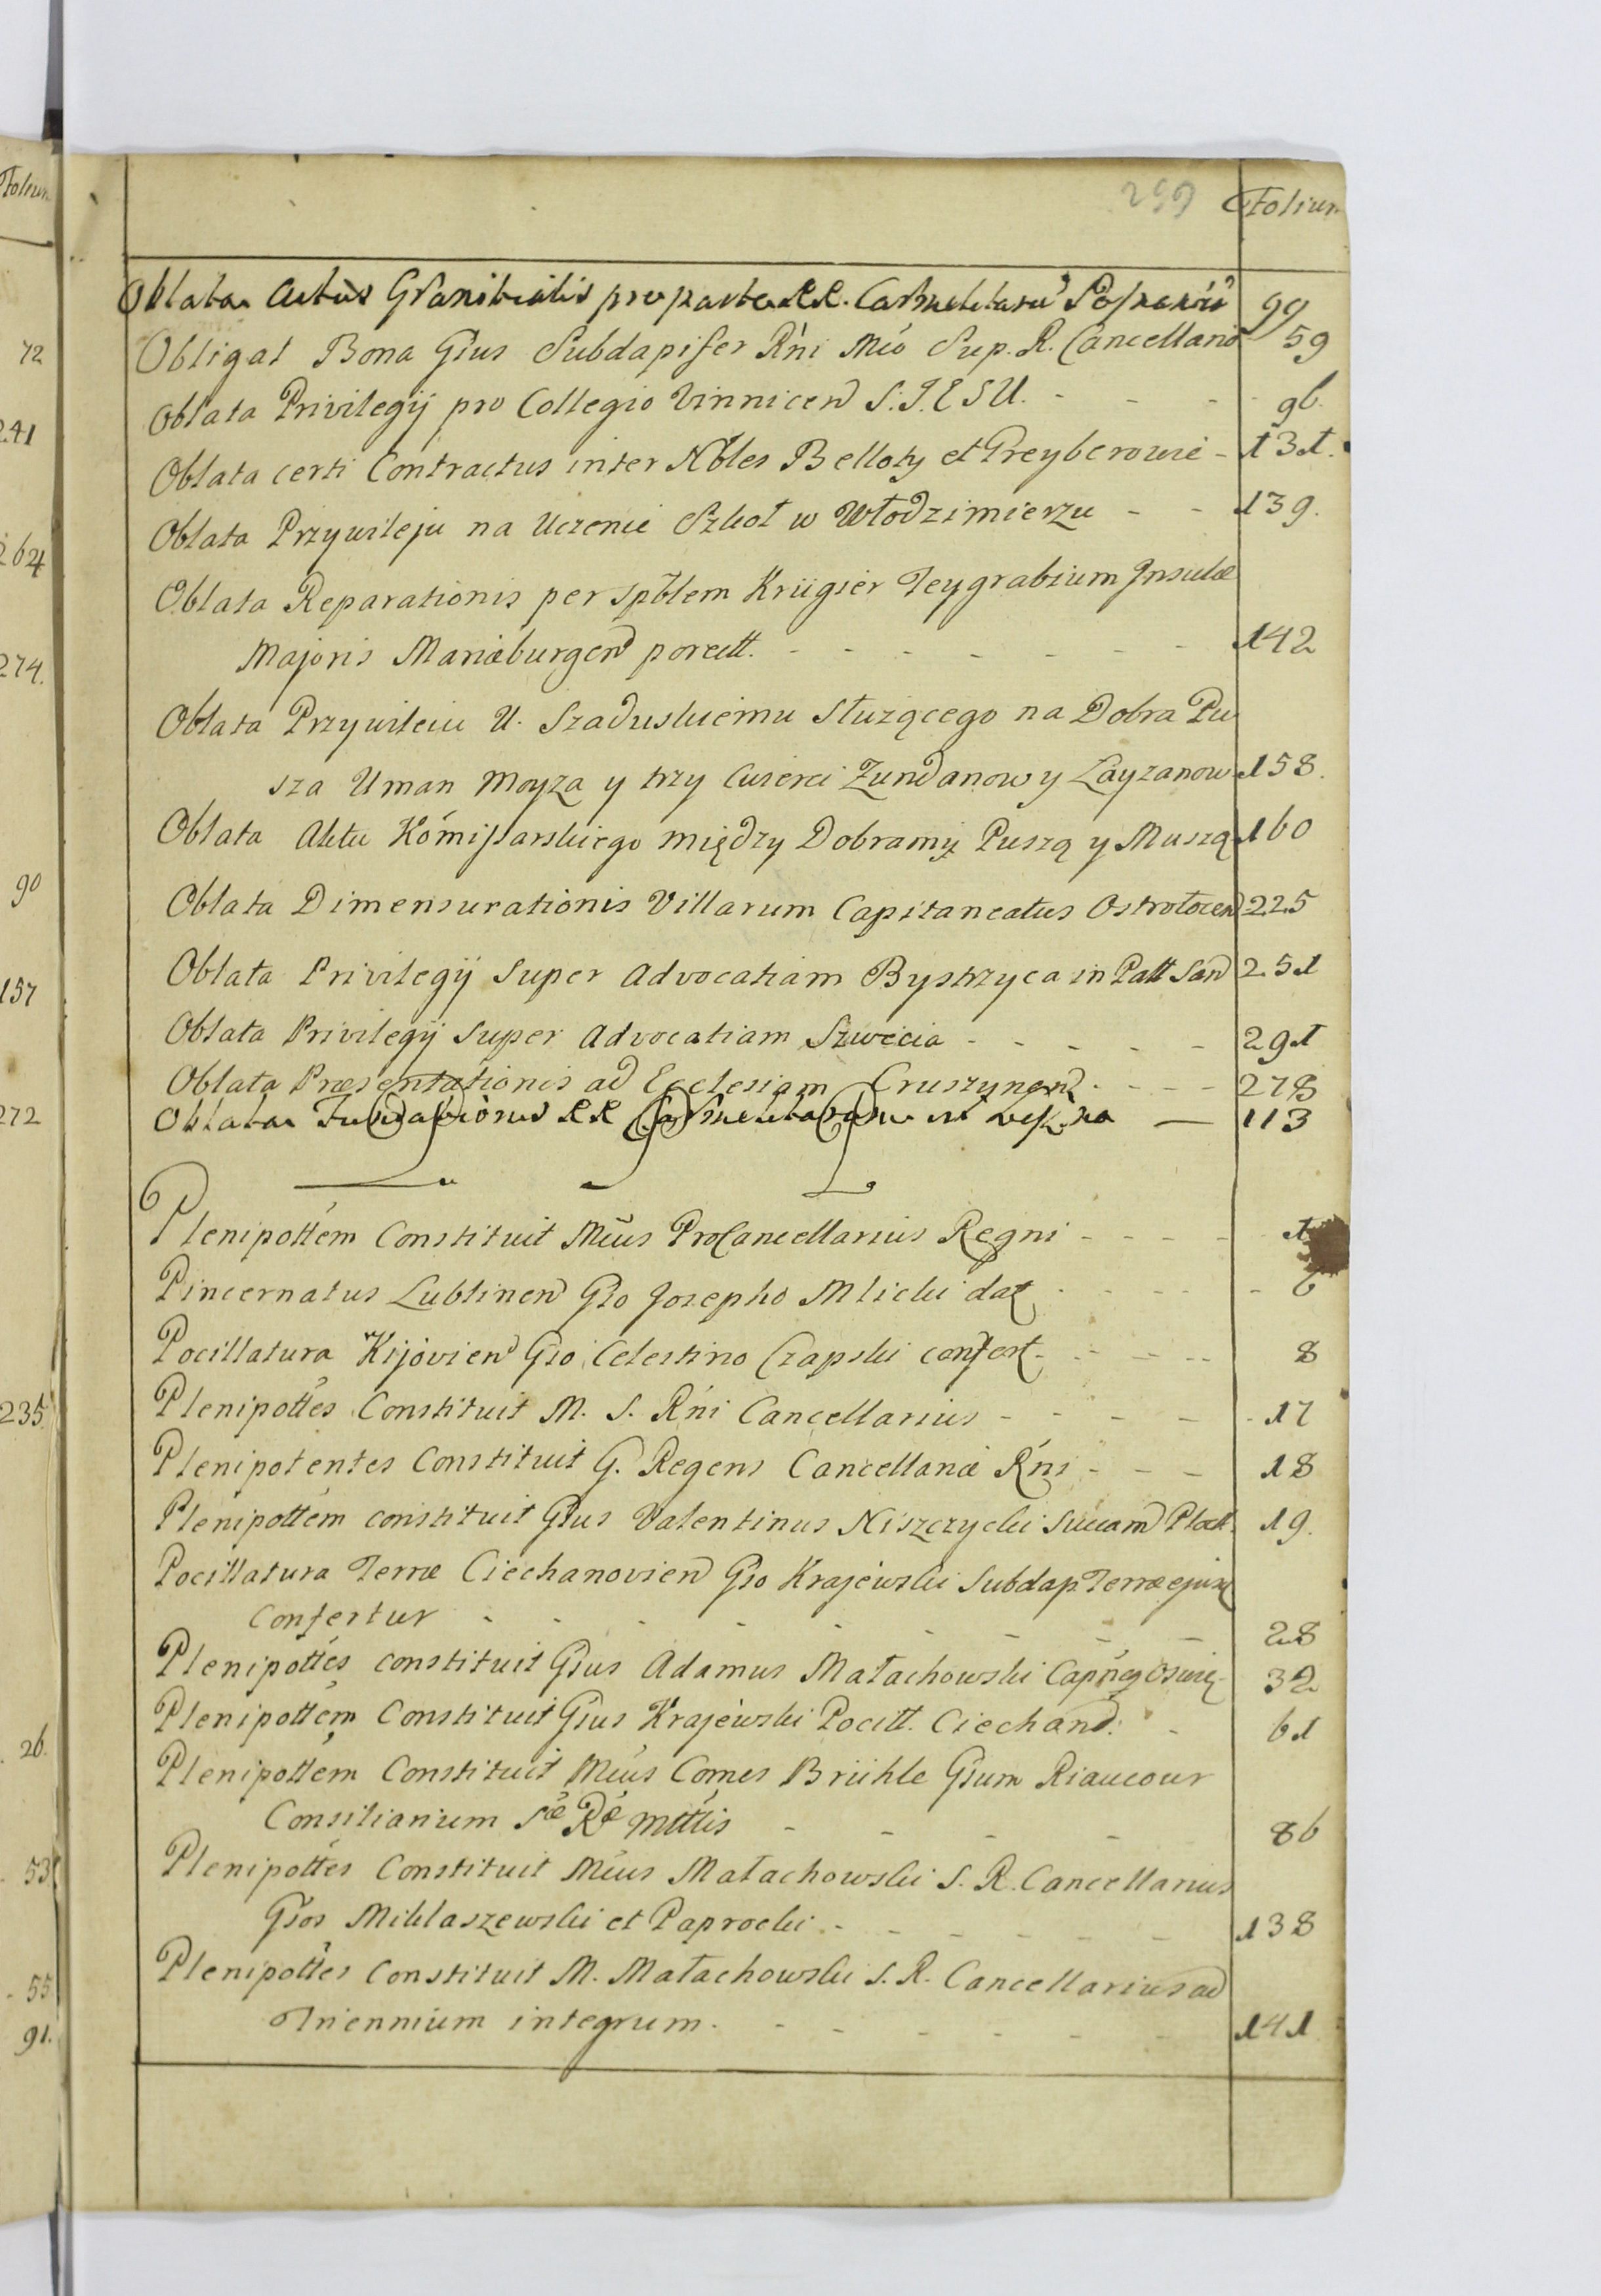 299 Folium
Oblata Actus Granitialis pro parte RR. Carmelitarū 99
Obligat Bona Gsus Subdapifer Rńi Mco Sup. R. Cancellario 59
Oblata Privilegij pro Collegio Vinnicen S. J. E S U. - - - 96.
Oblata certi Contractus inter Nobles Belloty et Preyberowie - 131.
Oblata Przywileju na Uczenie Szkoł w Włodzimierzu - - 139.
Oblata Reparationis per Spblem Krügier Teygrabium Insulæ
Majoris Mariæburgen porectt. - - - - - - - 142
Oblata Przywileiu U. Szaduskiemu Służącego na Dobra Pu
sza Uman Moyza y trzy Zundanow y Layzanow 158.
Oblata Aktu Kómissarskiego między Dobramy Puszą y Muszą 160
Oblata Dimensurationis Villarum Capitaneatus Ostrołęcen 225
Oblata Privilegij Super Advocatiam Bystrzyca in Patt San 251
Oblata Privilegij Super Advocatiam Szwecia - - - - - 291
Oblata Præsentationis ad Ecclesiam Cruszynen - - - - 278
Oblata Fundationis RR Carmelitarum in — 113
Plenipottém Constituit Mcus ProCancellarius Regni - - - - 1
Pincernatus Lublinen Gso Josepho Mlicki dat - - - - - 6
Pocillatura Kijovien Gso Celestino Czapski confert - - - - 8
Plenipottés Constituit M. S. Rńi Cancellarius - - - - - 17
Plenipotentes Constituit G. Regens Cancellariæ Rńi - - - 18
Plenipottém constituit Gsus Valentinus Niszczycki Succam Plocc. 19.
Pocillatura Terræ Ciechanovien Gso Krajewski Subdap Terræ ejusd
Confertur - - - - - - - - - 28
Plenipottés constituit Gsus Adamus Małachowski Capńeg Oswię- 32
Plenipottém Constituit Gsus Krajewski Pocitt. Ciechan. - 61
Plenipottém Constituit Mcus Comes Brühle Gsum Riaucour
Consiliarium Sæ Ræ Mttis - - - - 86
Plenipottés Constituit Mcus Małachowski S. R. Cancellarius
Gsos Miklaszewski et Paprocki - - - - - - 138
Plenipottés Constituit M. Małachowski S. R. Cancellarius ad
Triennium integrum. - - - - - - 141
Folium
72
241
264
274.
90
157
272
235
26.
53
55
91.